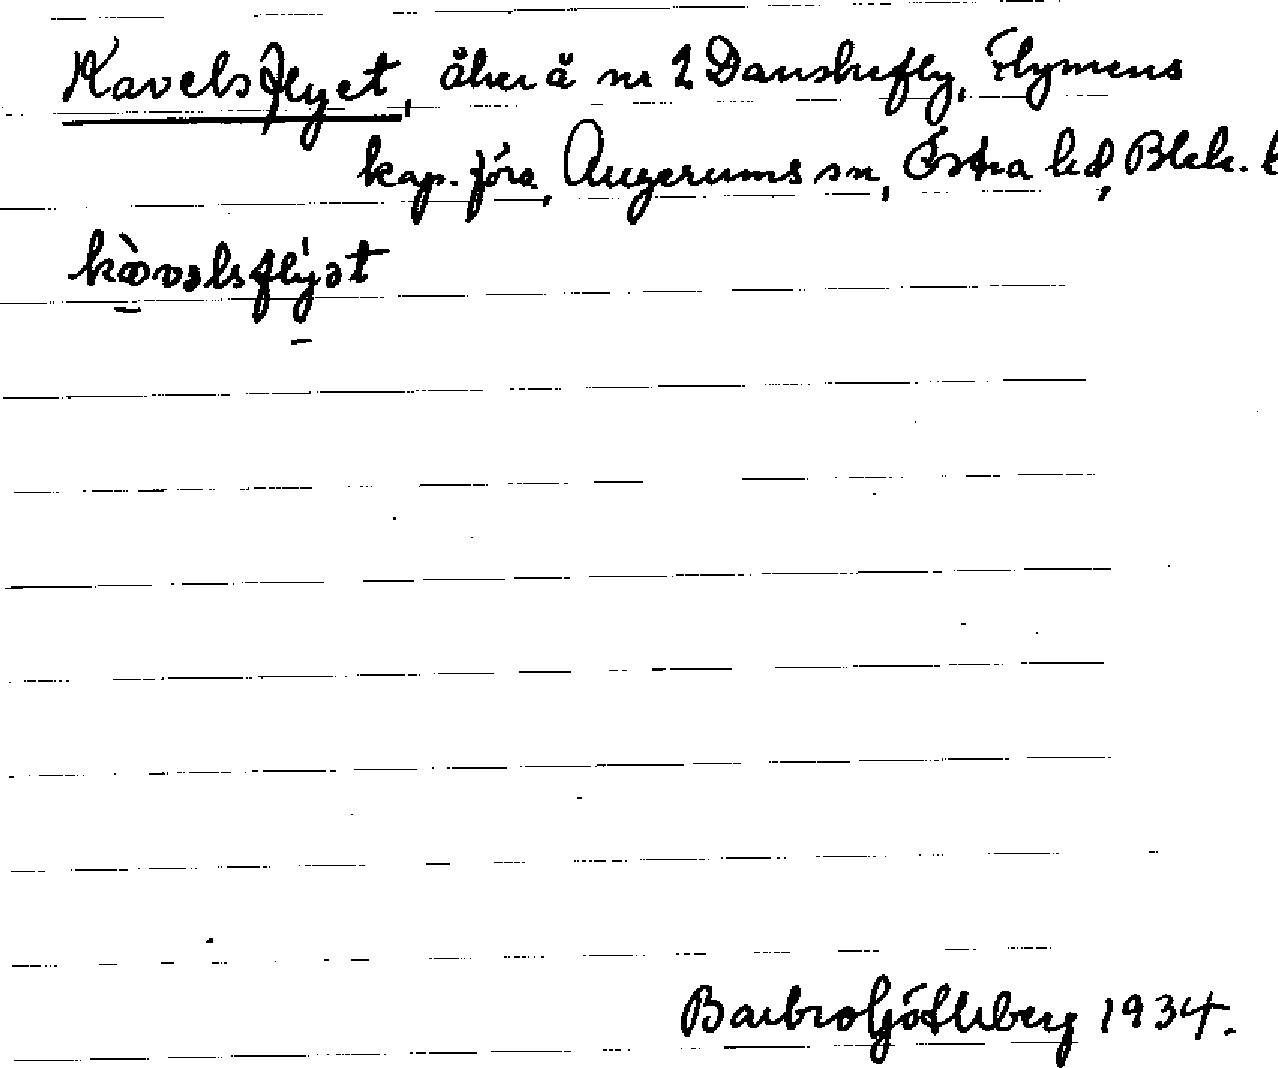 Kavelsflyet, åker å nr 2 Danskefly, Flymens
kap. förs, Augerums sn, Östra hd, Blek. l
kòvəlsflýət
Barbro Götlberg 1934.